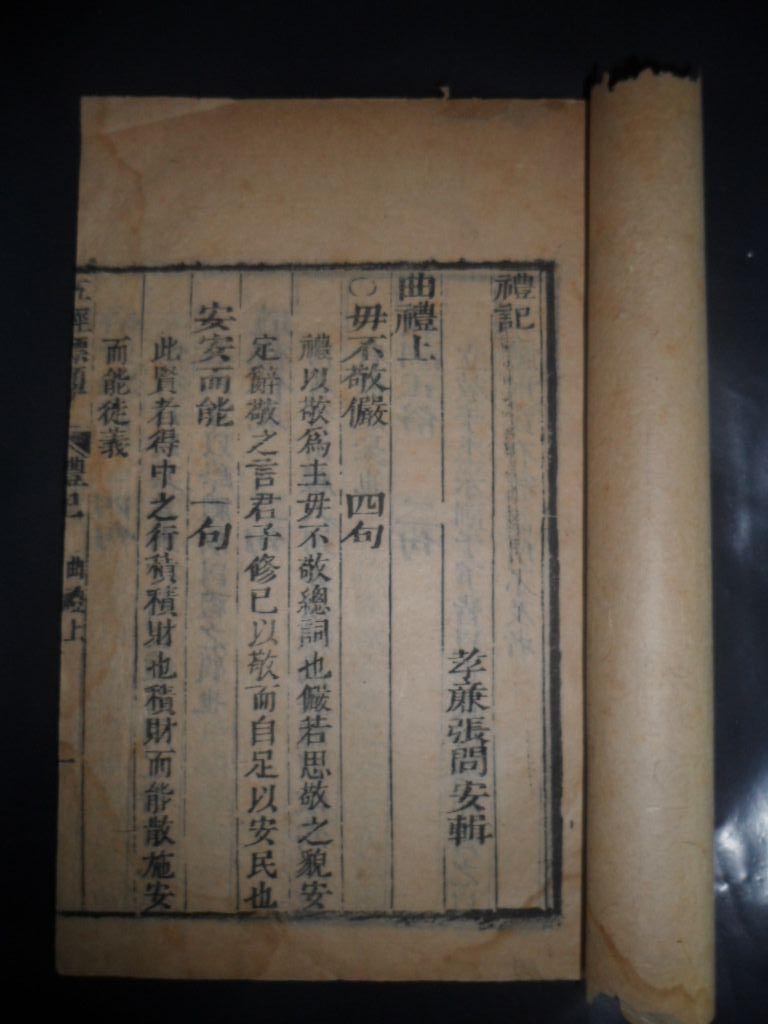 禮記
孝廉張問安輯
曲禮上
○毋不敬儼 四句
禮以敬爲主毋不敬總詞也儼若思敬之貌安
定辭敬之言君子修己以敬而自足以安民也
安安而能 一句
此賢者得中之行積積財也積財而能散施安
而能徙義
五經標題 禮記 曲禮上 一